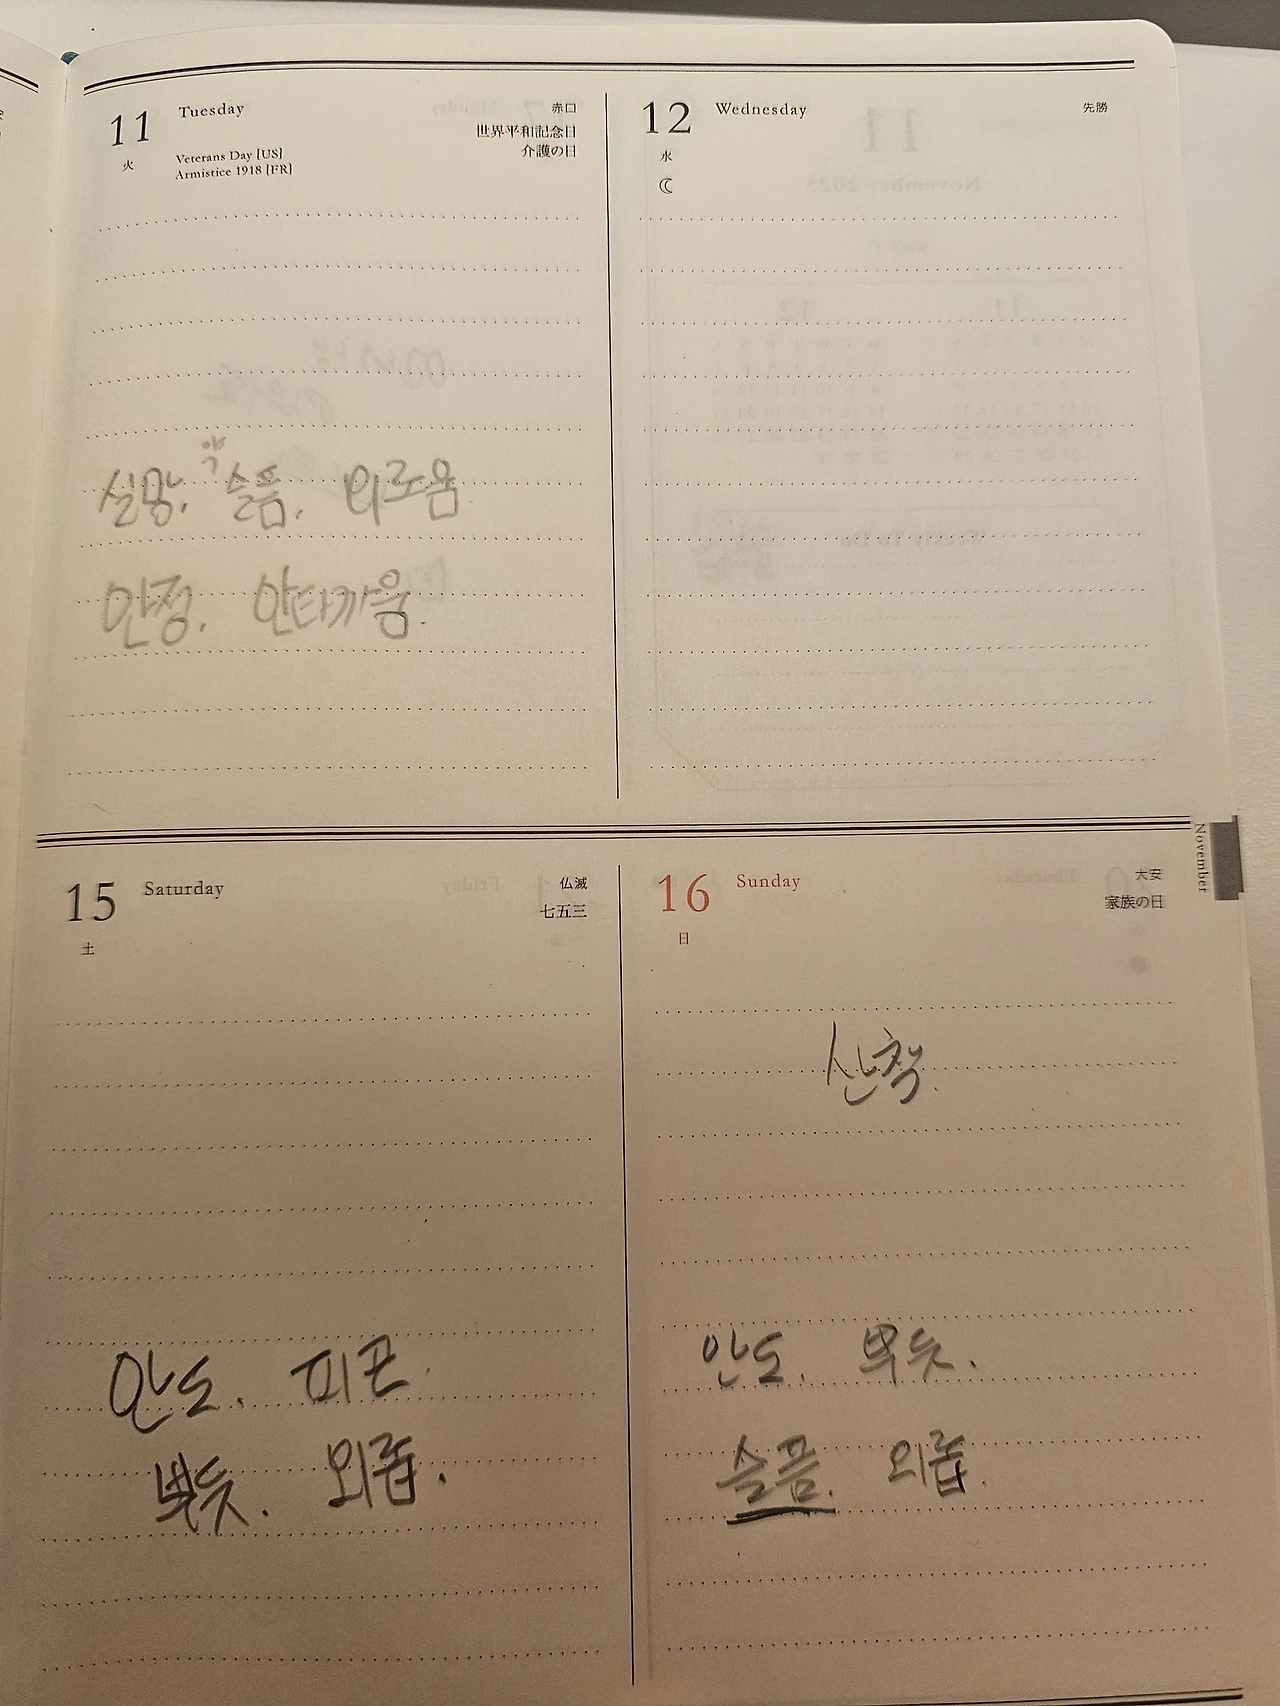 11 Tuesday 赤口
世界平和記念日
火 Veterans Day [US] 介護の日
Armistice 1918 [FR]
약
실망, 슬픔, 외로움
안정, 안타까움.
12 Wednesday 先勝
水
November
15 Saturday 仏滅
七五三
土
안도. 피곤.
뿌듯. 외롭.
16 Sunday 大安
家族の日
日
산책.
안도. 뿌듯.
슬픔. 외롭.